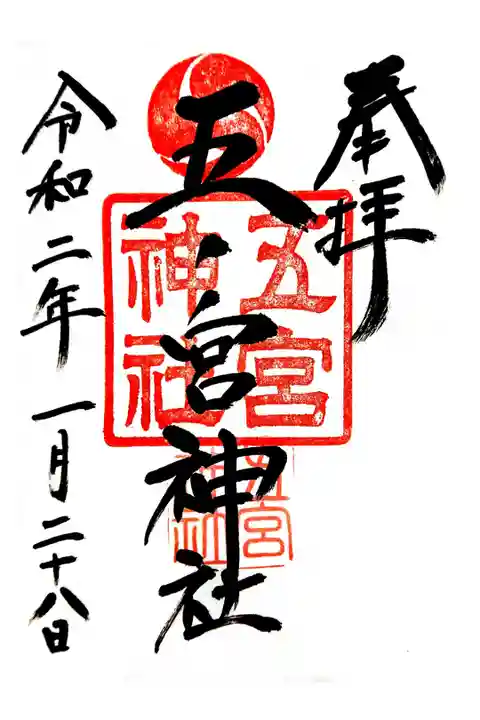 奉拝
五宮神社
五宮
神社
五宮
神社
令和二年一月二十八日